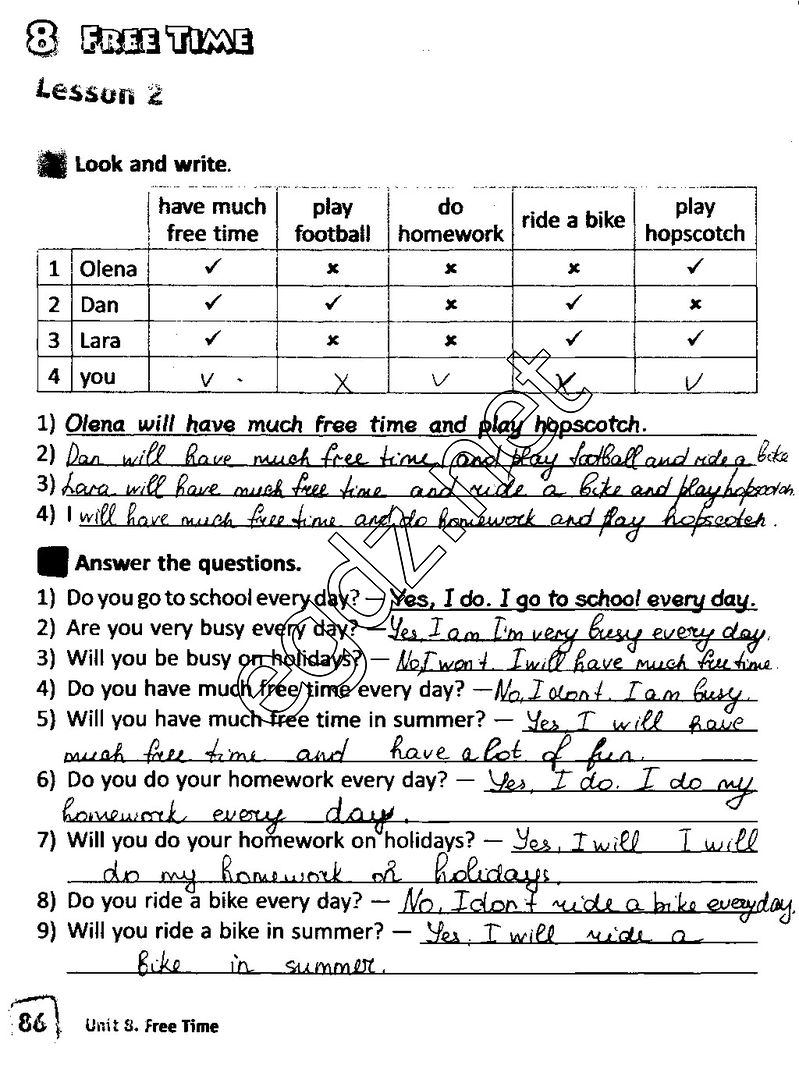 8 FREE TIME
Lesson 2
Look and write.
have much free time play football do homework ride a bike play hopscotch
1 Olena ✓ × × × ✓
2 Dan ✓ ✓ × ✓ ×
3 Lara ✓ × × ✓ ✓
4 you v x v x v
1) Olena will have much free time and play hopscotch.
2) Dan will have much free time and play football and ride a bike
3) Lara will have much free time and ride a bike and play hopscotch.
4) I will have much free time and do homework and play hopscotch.
Answer the questions.
1) Do you go to school every day? — Yes, I do. I go to school every day.
2) Are you very busy every day? — Yes, I am I'm very busy every day.
3) Will you be busy on holidays? — No, I won't. I will have much free time.
4) Do you have much free time every day? — No, I dont. I am busy.
5) Will you have much free time in summer? — Yes I will have
much free time and have a lot of fun.
6) Do you do your homework every day? — Yes, I do. I do my
homework every day.
7) Will you do your homework on holidays? — Yes, I will I will
do my homework on holidays.
8) Do you ride a bike every day? — No, I don't ride a bike every day.
9) Will you ride a bike in summer? — Yes, I will ride a
bike in summer.
86 Unit 8. Free Time
egdz.net